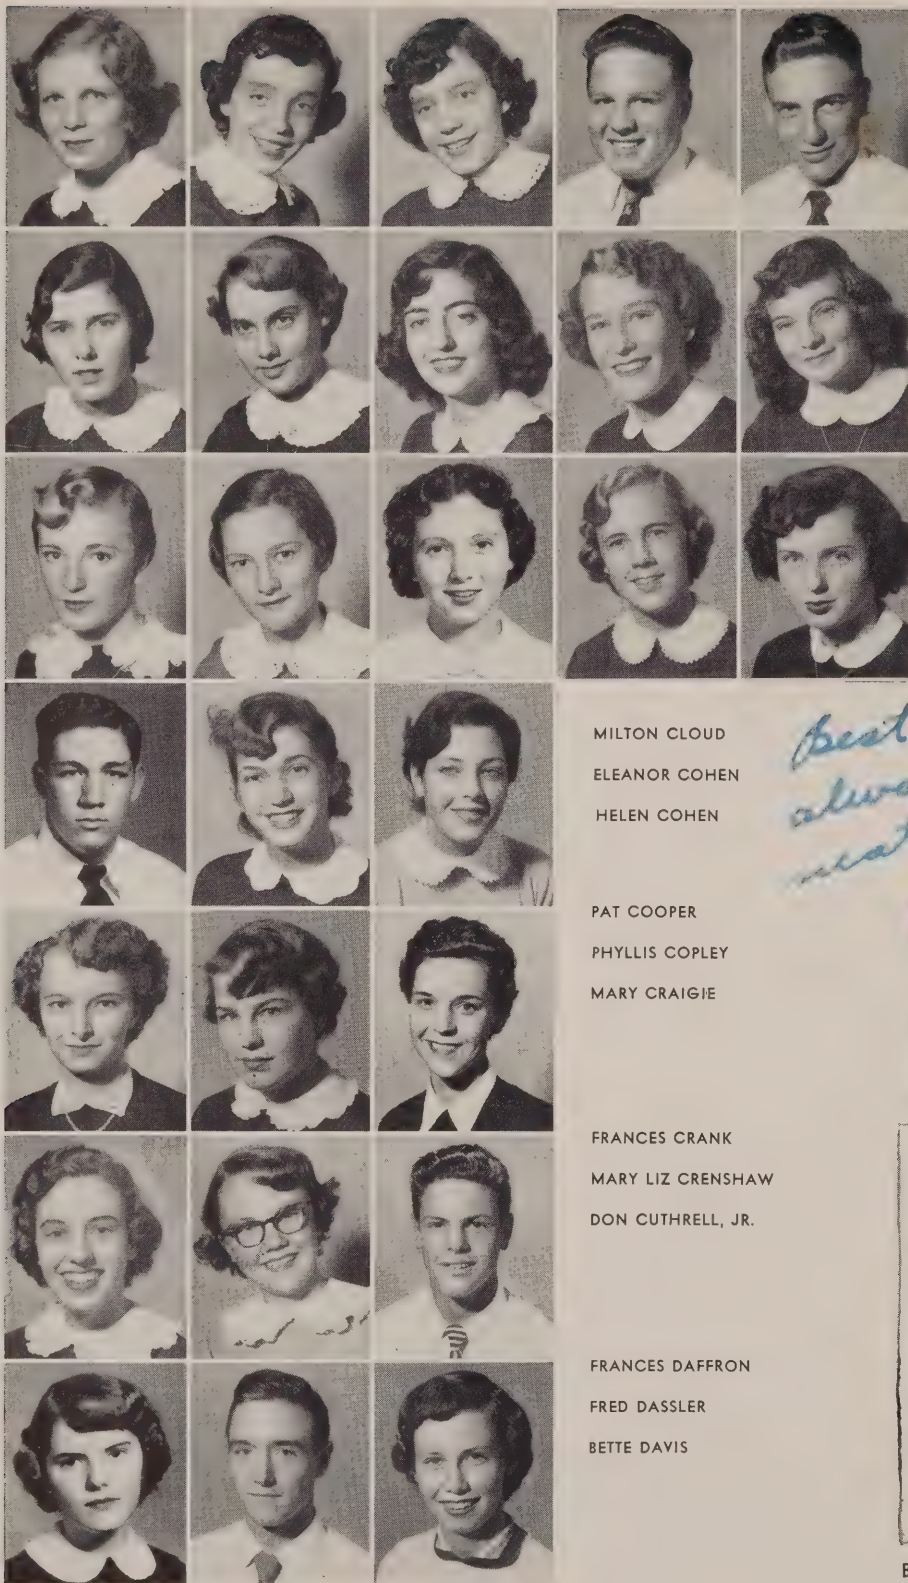 MILTON CLOUD
ELEANOR COHEN
HELEN COHEN
Best
PAT COOPER
PHYLLIS COPLEY
MARY CRAIGIE
FRANCES CRANK
MARY LIZ CRENSHAW
DON CUTHRELL, JR.
FRANCES DAFFRON
FRED DASSLER
BETTE DAVIS